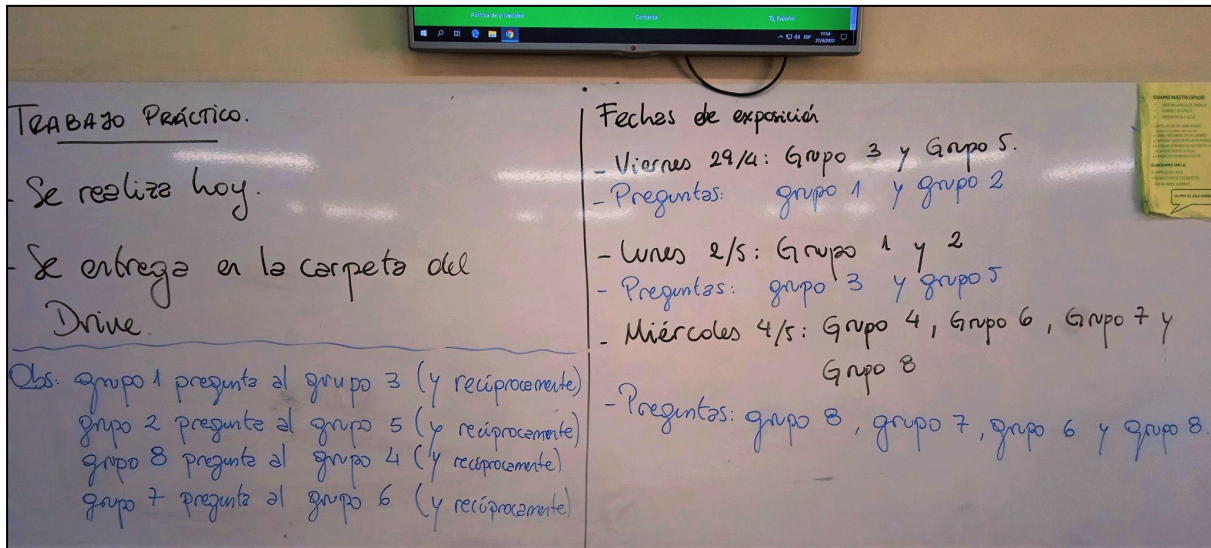 Política de privacidad
Contacta
Español
ESP
TRABAJO PRÁCTICO.
- Se realiza hoy.
- Se entrega en la carpeta del
Drive.
Obs: grupo 1 pregunta al grupo 3 (y recíprocamente)
grupo 2 pregunta al grupo 5 (y recíprocamente)
grupo 8 pregunta al grupo 4 (y recíprocamente)
grupo 7 pregunta al grupo 6 (y recíprocamente)
Fechas de exposición
- Viernes 29/4: Grupo 3 y Grupo 5.
- Preguntas: grupo 1 y grupo 2
- Lunes 2/5: Grupo 1 y 2
- Preguntas: grupo 3 y grupo 5
- Miércoles 4/5: Grupo 4, Grupo 6, Grupo 7 y
Grupo 8
- Preguntas: grupo 8, grupo 7, grupo 6 y grupo 8.